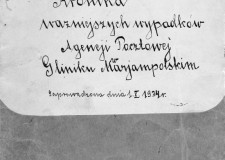 Kronika
ważniejszych wypadków
Agencji Pocztowej
Gliniku Marjampolskim
Zaprowadzona dnia 1.I 1934 r.